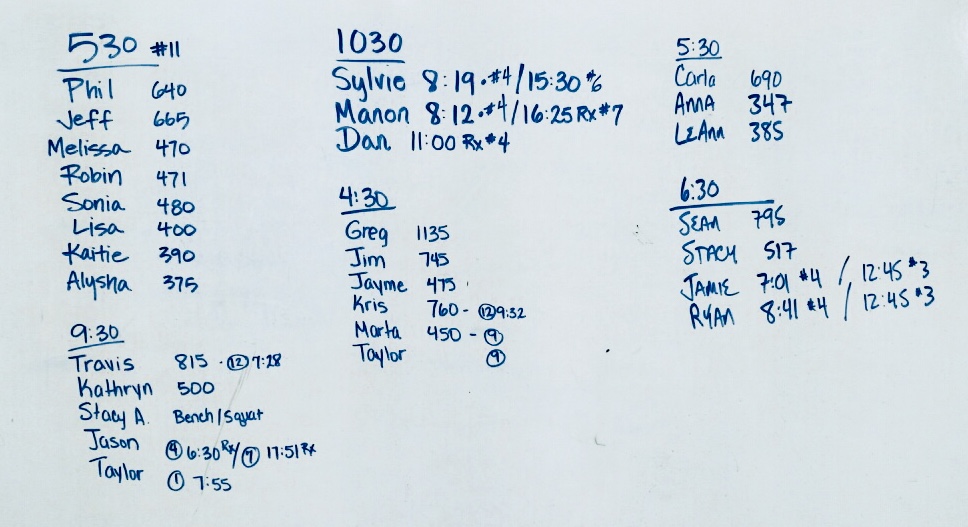 530 #11
Phil 640
Jeff 665
Melissa 470
Robin 471
Sonia 480
Lisa 400
Kaitie 390
Alysha 375
9:30
Travis 815 · ⑫ 7:28
Kathryn 500
Stacy A. Bench/Squat
Jason ④ 6:30 Rx/⑦ 17:51 Rx
Taylor ① 7:55
1030
Sylvie 8:19 · #4/15:30 #6
Manon 8:12 · #4/16:25 Rx #7
Dan 11:00 Rx #4
4:30
Greg 1135
Jim 745
Jayme 475
Kris 760 - ⑫ 9:32
Marta 450 - ⑨
Taylor ⑨
5:30
Carla 690
ANNA 347
LEANN 385
6:30
SEAN 795
STACY 517
JAMIE 7:01 #4 / 12:45 #3
RYAN 8:41 #4 / 12:45 #3